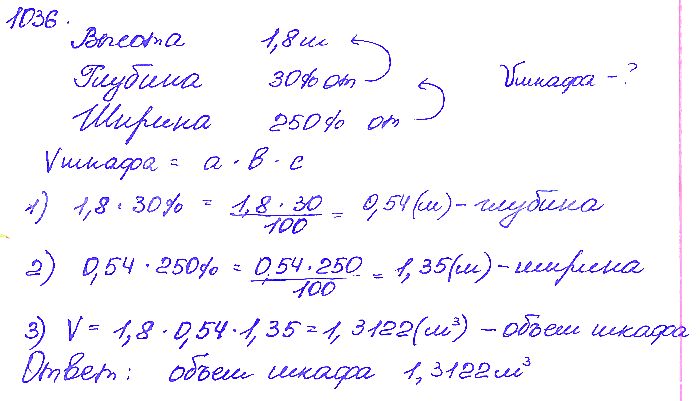 1036.
Высота 1,8 м
Глубина 30% от
Ширина 250% от
Vшкафа - ?
Vшкафа = a · b · c
1) 1,8 · 30% = 1,8 · 30 / 100 = 0,54 (м) - глубина
2) 0,54 · 250% = 0,54 · 250 / 100 = 1,35 (м) - ширина
3) V = 1,8 · 0,54 · 1,35 = 1,3122 (м³) - объем шкафа
Ответ: объем шкафа 1,3122 м³